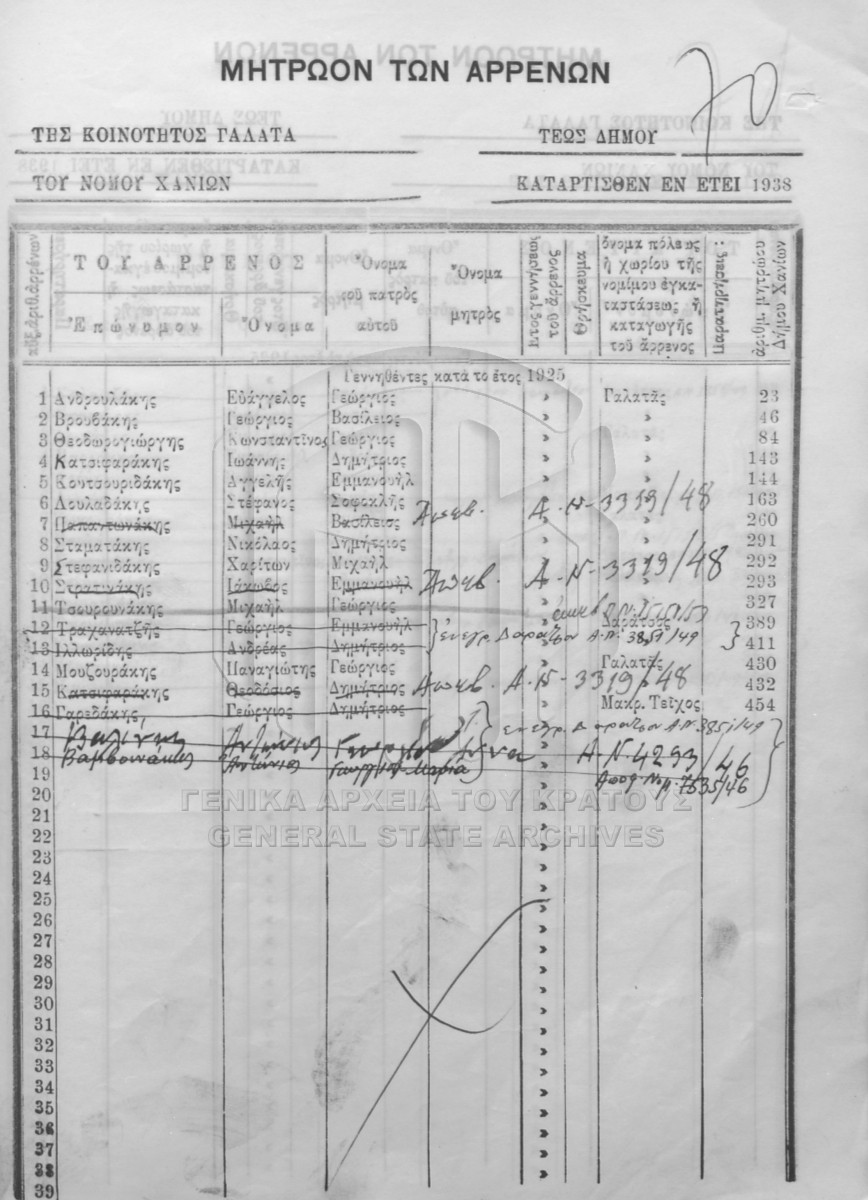 ΜΗΤΡΩΟΝ ΤΩΝ ΑΡΡΕΝΩΝ
70
ΤΗΣ ΚΟΙΝΟΤΗΤΟΣ ΓΑΛΑΤΑ ΤΕΩΣ ΔΗΜΟΥ
ΤΟΥ ΝΟΜΟΥ ΧΑΝΙΩΝ ΚΑΤΑΡΤΙΣΘΕΝ ΕΝ ΕΤΕΙ 1938
αὔξ.ἀριθ.ἀρρένων
ΤΟΥ ΑΡΡΕΝΟΣ
Ἐπώνυμον Ὄνομα
Ὄνομα
τοῦ πατρὸς
αὐτοῦ
Ὄνομα
μητρὸς
ἔτος γεννήσεως
τοῦ ἄρρενος
Θρήσκευμα
ὄνομα πόλεως
ἢ χωρίου τῆς
νομίμου ἐγκα-
ταστάσεως ἢ
καταγωγῆς
τοῦ ἄρρενος
Παρατηρήσεις
ἀριθμ μητρώου
Δήμου Χανίων
Γεννηθέντες κατὰ το ἔτος 1925
1 Ανδρουλάκης Εὐάγγελος Γεώργιος » Γαλατᾶς 23
2 Βρουβάκης Γεώργιος Βασίλειος » » 46
3 Θεοδωρογιώργης Κωνσταντῖνος Γεώργιος » » 84
4 Κατσιφαράκης Ιωάννης Δημήτριος » » 143
5 Κουτσουριδάκης Αγγελῆς Εμμανουήλ » » 144
6 Λουλαδάκης Στέφανος Σοφοκλῆς » » 163
7 Παπαντωνάκης Μιχαὴλ Βασίλειος Α.Ν-3319/48 260
8 Σταματάκης Νικόλαος Δημήτριος » » 291
9 Στεφανιδάκης Χαρίτων Μιχαὴλ » » 292
10 Στρατινάκης Ιάκωβος Εμμανουὴλ Α-Ν-3319/48 293
11 Τσουρουνάκης Μιχαὴλ Γεώργιος » 327
12 Τραχανατζῆς Γεώργιος Εμμανουὴλ Δαράτσος 389
13 Ιλλωρίδης Ανδρέας Δημήτριος 411
14 Μουζουράκης Παναγιώτης Γεώργιος » Γαλατᾶς 430
15 Κατσιφαράκης Θεοδόσιος Δημήτριος Α-Ν-3319/48 432
16 Γαρεδάκης Γεώργιος Δημήτριος » Μακρ. Τεῖχος 454
17 Αντώνιος Γεωργίου Άννα
18 Αντώνιος Μαρία Α-Ν.4293/46
19
20
ΓΕΝΙΚΑ ΑΡΧΕΙΑ ΤΟΥ ΚΡΑΤΟΥΣ
21
GENERAL STATE ARCHIVES
22
23
24
25
26
27
28
29
30
31
32
33
34
35
36
37
38
39